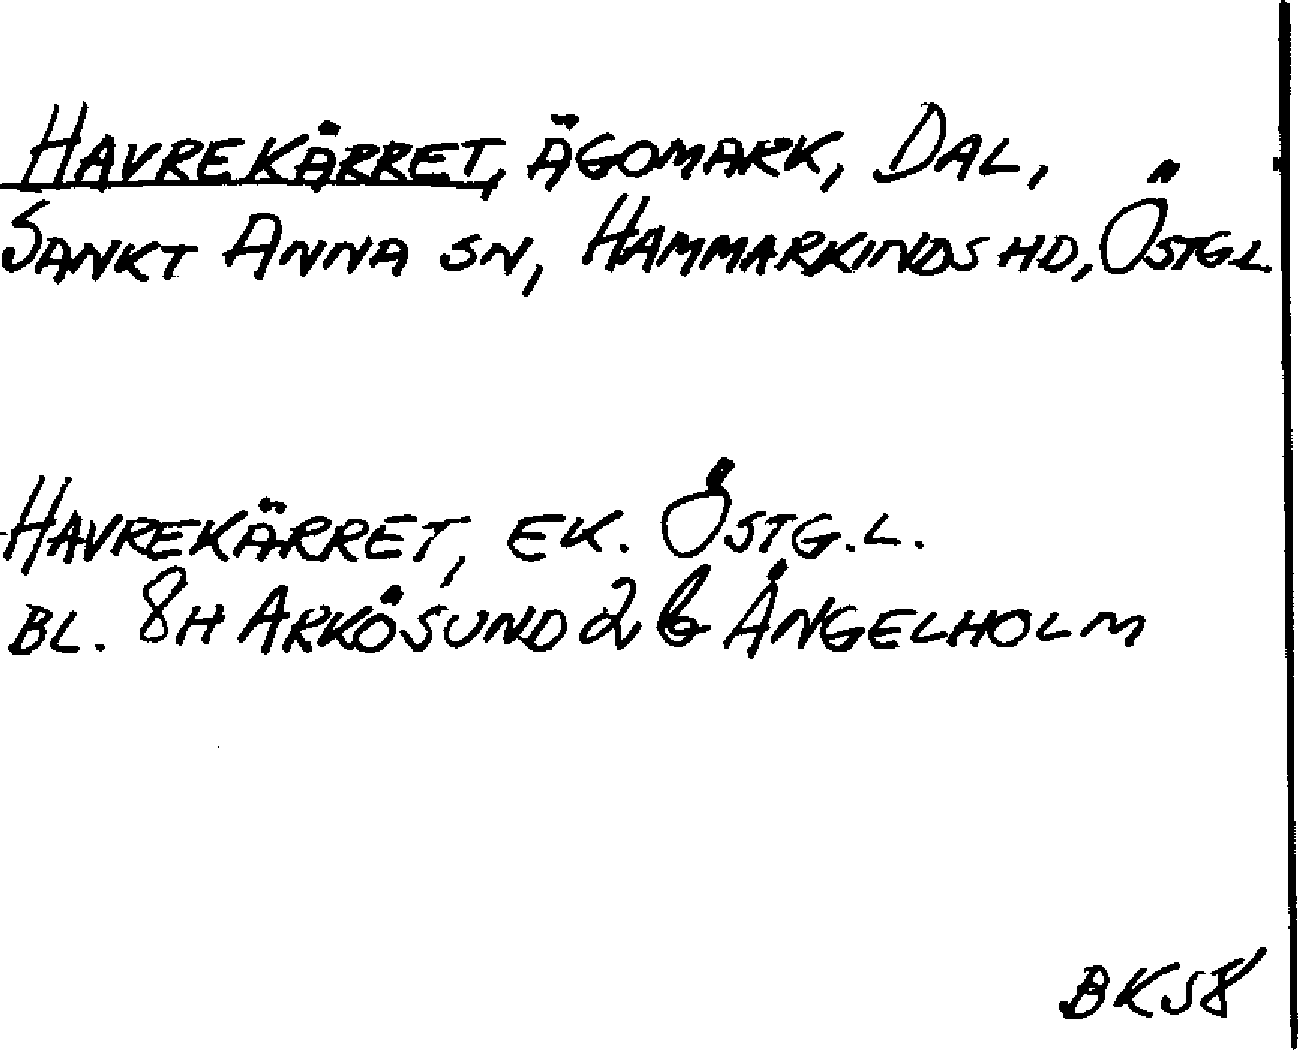 HAVREKÄRRET, ÄGOMARK, DAL,
SANKT ANNA SN, HAMMARKINDS HD, ÖSTG.L.
HAVREKÄRRET, EK. ÖSTG.L.
BL. 8H ARKÖSUND 2 b ÅNGELHOLM
BK58